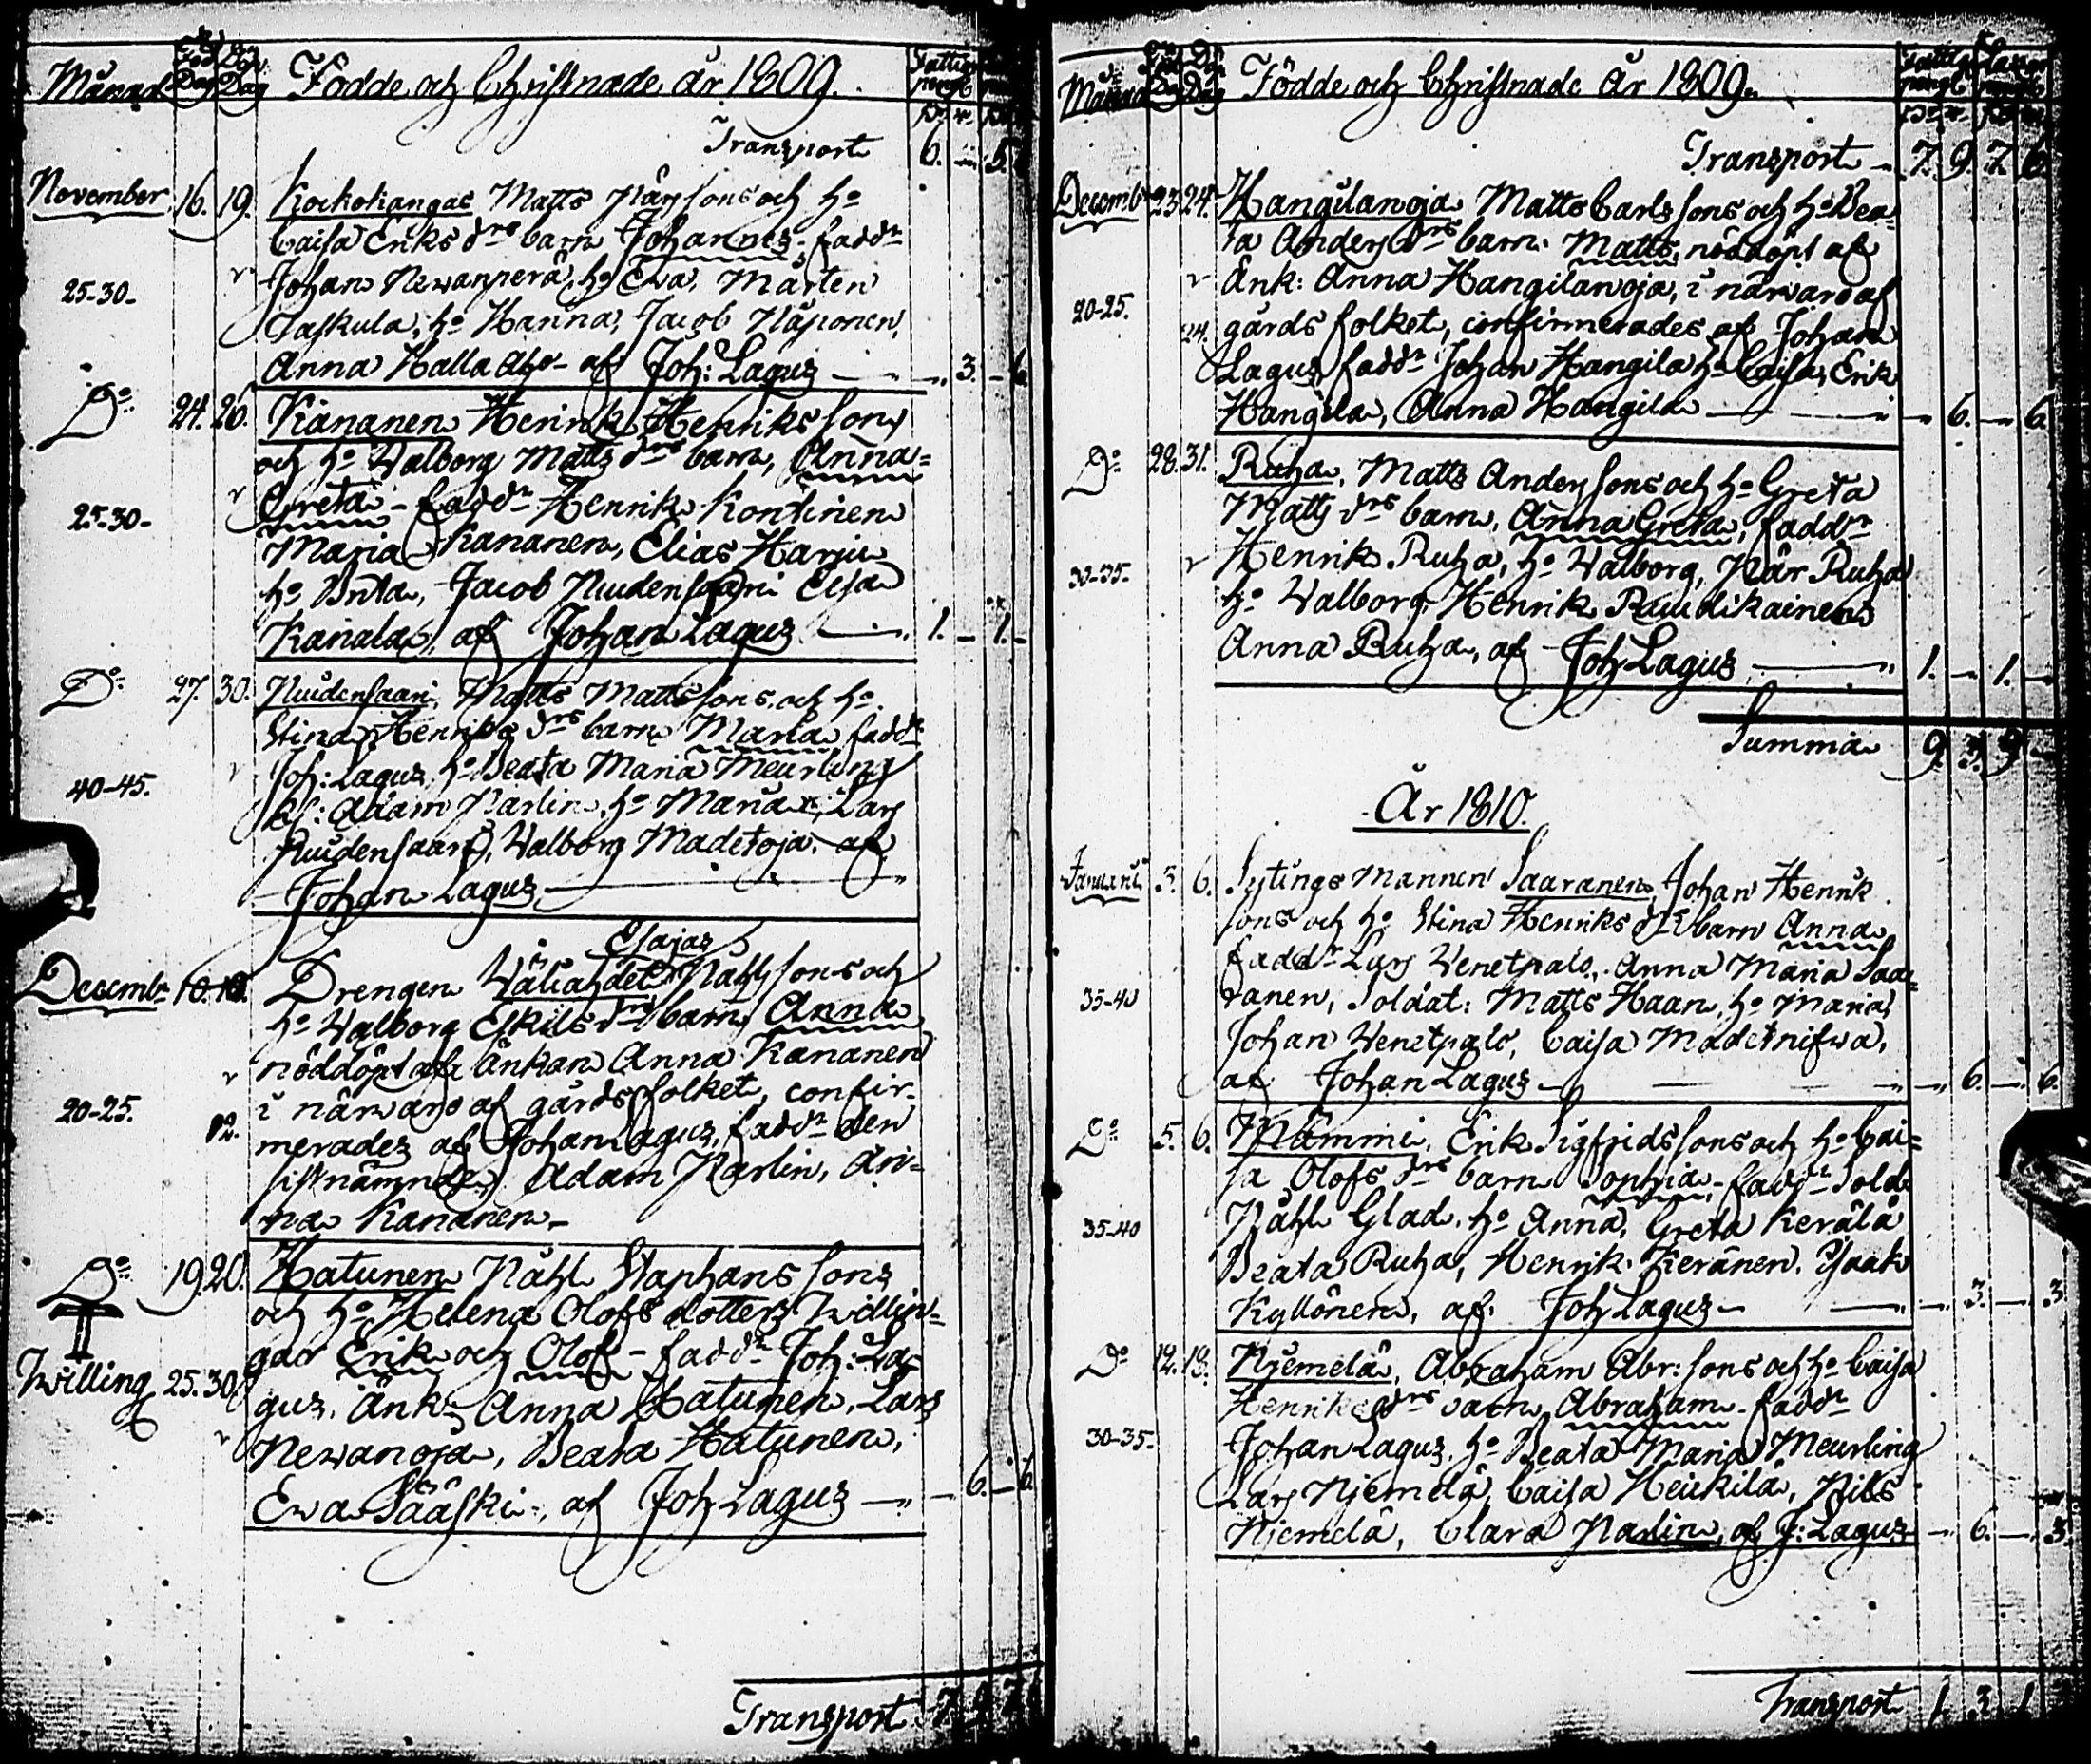 Månad Föd Dag Döp Dag Födde och Christnade år 1809. Fattig peng:
Transport 6. — 5.
November 16. 19. Kockokangas Matts Pärssons och h:o
Caisa Eriks d:rs barn Johannes, fadd:r
Johan Newanperä, h:o Ewa, Mårten
25-30. Jaskula, h:o Hanna, Jacob Näponen,
Anna Halla aho - af Joh: Lagus — 3. — 6.
D:o 24. 26. Känanen Henrik Henriks sons
och h:o Walborg Matts d:rs barn, Anna=
Greta - fadd:r Henrik Kontinen
25-30- Maria Kananen, Elias Harju
h:o Brita, Jacob Nuidensaari Elsa
Kanala, af Johan Lagus — 1. — 1. —
D:o 27. 30. Nuidensaari, Matts Mattssons och h:o
Stina Henriks d:rs barn Maria fadd:r
Joh: Lagus, h:o Beata Maria Meurling
40-45. Kl: Adam Karlin, h:o Maria, Lars
Nuidensaari, Walborg Madetoja, af
Johan Lagus —
Esajas
Decembr 10. 10. Drengen Wäliahdet Påhlssons och
h:o Walborg Eskils d:rs barn Anna
nöddöpt af Änkan Anna Kananen
i närwaro af gårdsfolket, confir-
20-25. 12. merades af Johan Lagus, fadd:r den
sistnämnde, Adam Karlin, An-
na Kananen.
D:o 19. 20. Hatunen Påhl Staphans sons
och h:o Helena Olofs dotters Twillin-
gar Erik och Olof - fadd:r Joh: La-
Twilling 25. 30. gus, Änk: Anna Hatunen, Lars
Newanoja, Beata Hatunen,
Ewa Sääski, af Joh Lagus — 6. — 6.
Transport 7. 9. 7.
Månad Föd Dag Döp Dag Födde och Christnade år 1809.
Transport — 7. 9. 7. 6.
Decemb 23. 24. Hangilanoja Matts Carls sons och h:o Bea-
ta Anders d:rs barn Matts, nöddöpt af
Änk: Anna Hangilanoja, i närwaro af
20-25. 24. gårdsfolket, confirmerades af Johan
Lagus, fadd:r Johan Hangila h:o Caisa, Erik
Hangila, Anna Hangila — 6. — 6.
D:o 28. 31. Ruha, Matts Anderssons och h:o Greta
Matts d:rs barn, Anna Greta, fadd:r
30-35. Henrik Ruha, h:o Walborg, Pär Ruha
h:o Walborg, Henrik Raudikainen
Anna Ruha, af Joh Lagus — 1. — 1. —
Summa 9. 3. 9. —
År 1810.
Januarii 3. 6. Sytings mannen Saaranen, Johan Henrik
sons och h:o Stina Henriks d:rs barn Anna
fadd:r Lars Wenetpalo, Anna Maria Saa-
35-40 ranen, Soldat: Matts Haan, h:o Maria,
Johan Wenetpalo, Caisa Madetnifwa,
af Johan Lagus — 6. — 6.
D:o 5. 6. Mämmi, Erik Sigfrids sons och h:o Cai-
sa Olofs d:rs barn Sophia, fadd:r Sold
35-40 Påhl Glad, h:o Anna, Greta Kerälä
Beata Ruha, Henrik Keränen, Isaak
Kyllönen, af Joh Lagus — 3. — 3
D:o 12. 13. Njemelä, Abraham Abr: sons och h:o Caisa
Henriks d:rs barn, Abraham - fadd:r
30-35. Johan Lagus, h:o Beata Maria Meurling
Lars Njemelä, Caisa Heikilä, Nils
Njemelä, Clara Karlin, af J: Lagus — 6. — 3.
Transport 1. 3. 1.